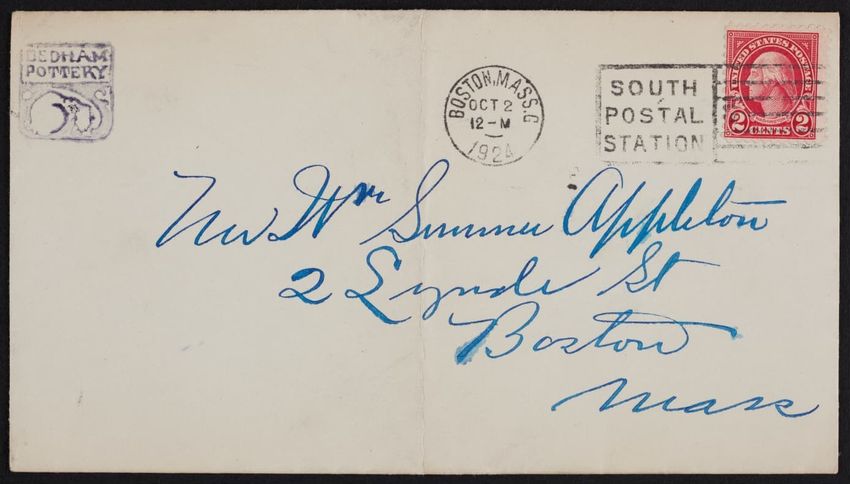 DEDHAM
POTTERY
BOSTON, MASS. C
OCT 2
12-M
1924
SOUTH
POSTAL
STATION
UNITED STATES POSTAGE
2 CENTS 2
Mr Wm Sumner Appleton
2 Lynde St
Boston
Mass